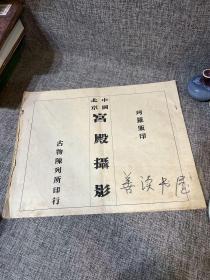 列羅版印
中國
北京
宮殿攝影
古物陳列所印行
善读书屋